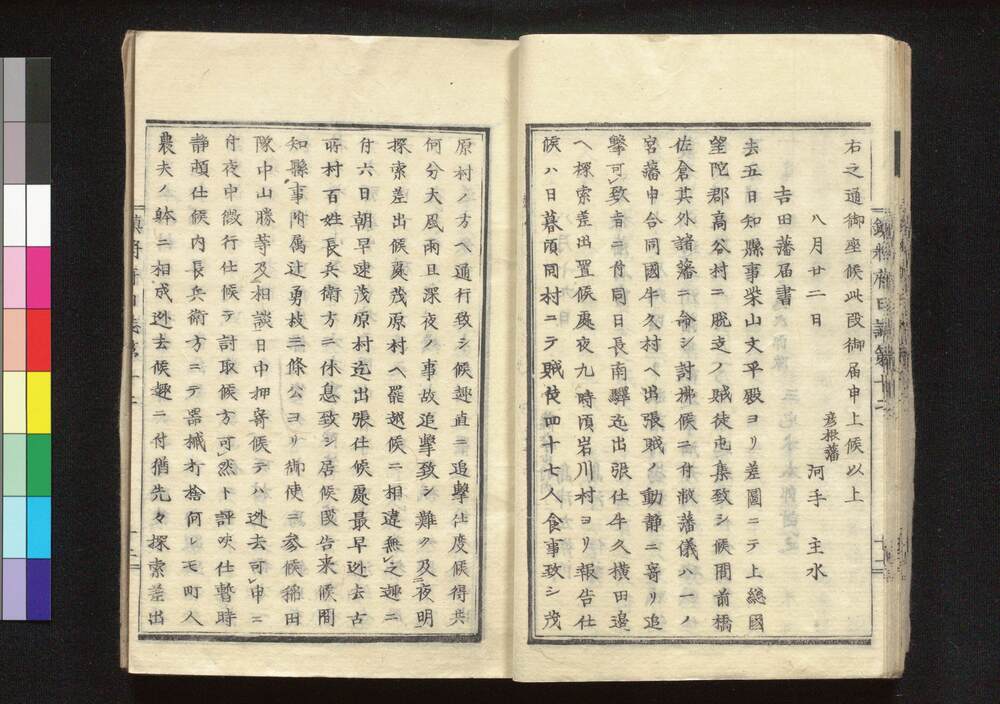 右之通御座候此段御届申上候以上
八月廿二日
彦根藩
河手主水
吉田藩届書
去五日知縣事柴山文平殿ヨリ差圖ニテ上總國
望陀郡高谷村ニ脱走ノ賊徒屯集致シ候間前橋
佐倉其外諸藩ニ命シ討拂候ニ付敝藩儀ハ一ノ
宮藩申合同國牛久村ヘ出張賊ノ動静ニ寄リ追
撃可致旨ニ付同日長南驛迄出張仕牛久横田邊
ヘ探索差出置候處夜九時頃岩川村ヨリ報告仕
候ハ日暮頃同村ニテ賊徒四十七人食事致シ茂
原村ノ方ヘ通行致シ候趣直ニ追撃仕度候得共
何分大風雨且深夜ノ事故追撃致シ難ク及夜明
探索差出候處茂原村ヘ罷越候ニ相違無之趣ニ
付六日朝早速茂原村迄出張仕候處最早迯去古
所村百姓長兵衛方ニ休息致シ居候段告来候間
知縣事附属辻勇技三條公ヨリ御使ニ参候綿田
隊中山勝等及相談日中押寄候テハ迯去可申ニ
付夜中微行仕候テ討取候方可然ト評决仕暫時
静頓仕候内長兵衛方ニテ器械打捨何レモ町人
農夫ノ躰ニ相成迯去候趣ニ付猶先々探索差出